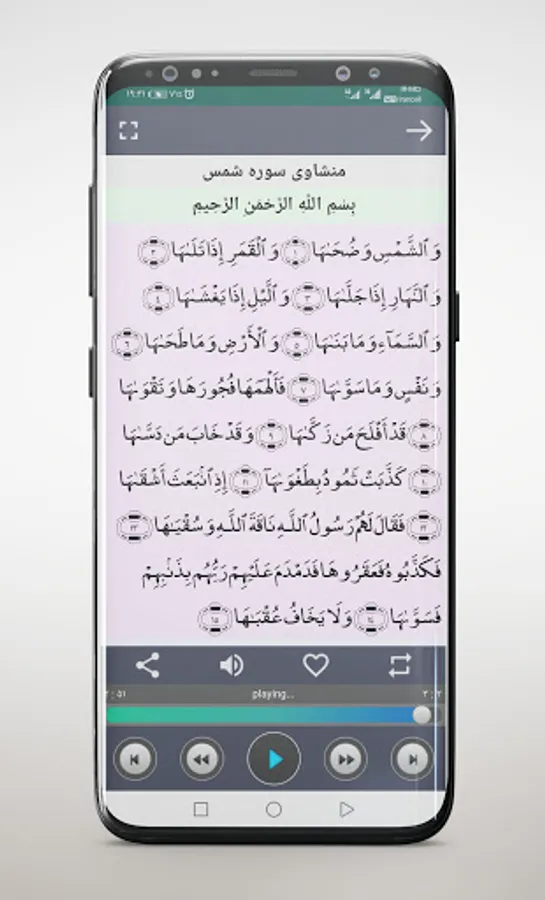 ١٩:٢١ ٧١٪
منشاوی سوره شمس
بِسْمِ اللَّهِ الرَّحْمَنِ الرَّحِيمِ
وَٱلشَّمْسِ وَضُحَىٰهَا ١ وَٱلْقَمَرِ إِذَا تَلَىٰهَا ٢
وَٱلنَّهَارِ إِذَا جَلَّىٰهَا ٣ وَٱلَّيْلِ إِذَا يَغْشَىٰهَا ٤
وَٱلسَّمَآءِ وَمَا بَنَىٰهَا ٥ وَٱلْأَرْضِ وَمَا طَحَىٰهَا ٦
وَنَفْسٍ وَمَا سَوَّىٰهَا ٧ فَأَلْهَمَهَا فُجُورَهَا وَتَقْوَىٰهَا
٨ قَدْ أَفْلَحَ مَن زَكَّىٰهَا ٩ وَقَدْ خَابَ مَن دَسَّىٰهَا
١٠ كَذَّبَتْ ثَمُودُ بِطَغْوَىٰهَآ ١١ إِذِ ٱنۢبَعَثَ أَشْقَىٰهَا
١٢ فَقَالَ لَهُمْ رَسُولُ ٱللَّهِ نَاقَةَ ٱللَّهِ وَسُقْيَـٰهَا ١٣
فَكَذَّبُوهُ فَعَقَرُوهَا فَدَمْدَمَ عَلَيْهِمْ رَبُّهُم بِذَنۢبِهِمْ
فَسَوَّىٰهَا ١٤ وَلَا يَخَافُ عُقْبَـٰهَا ١٥
٢:٥١ playing...